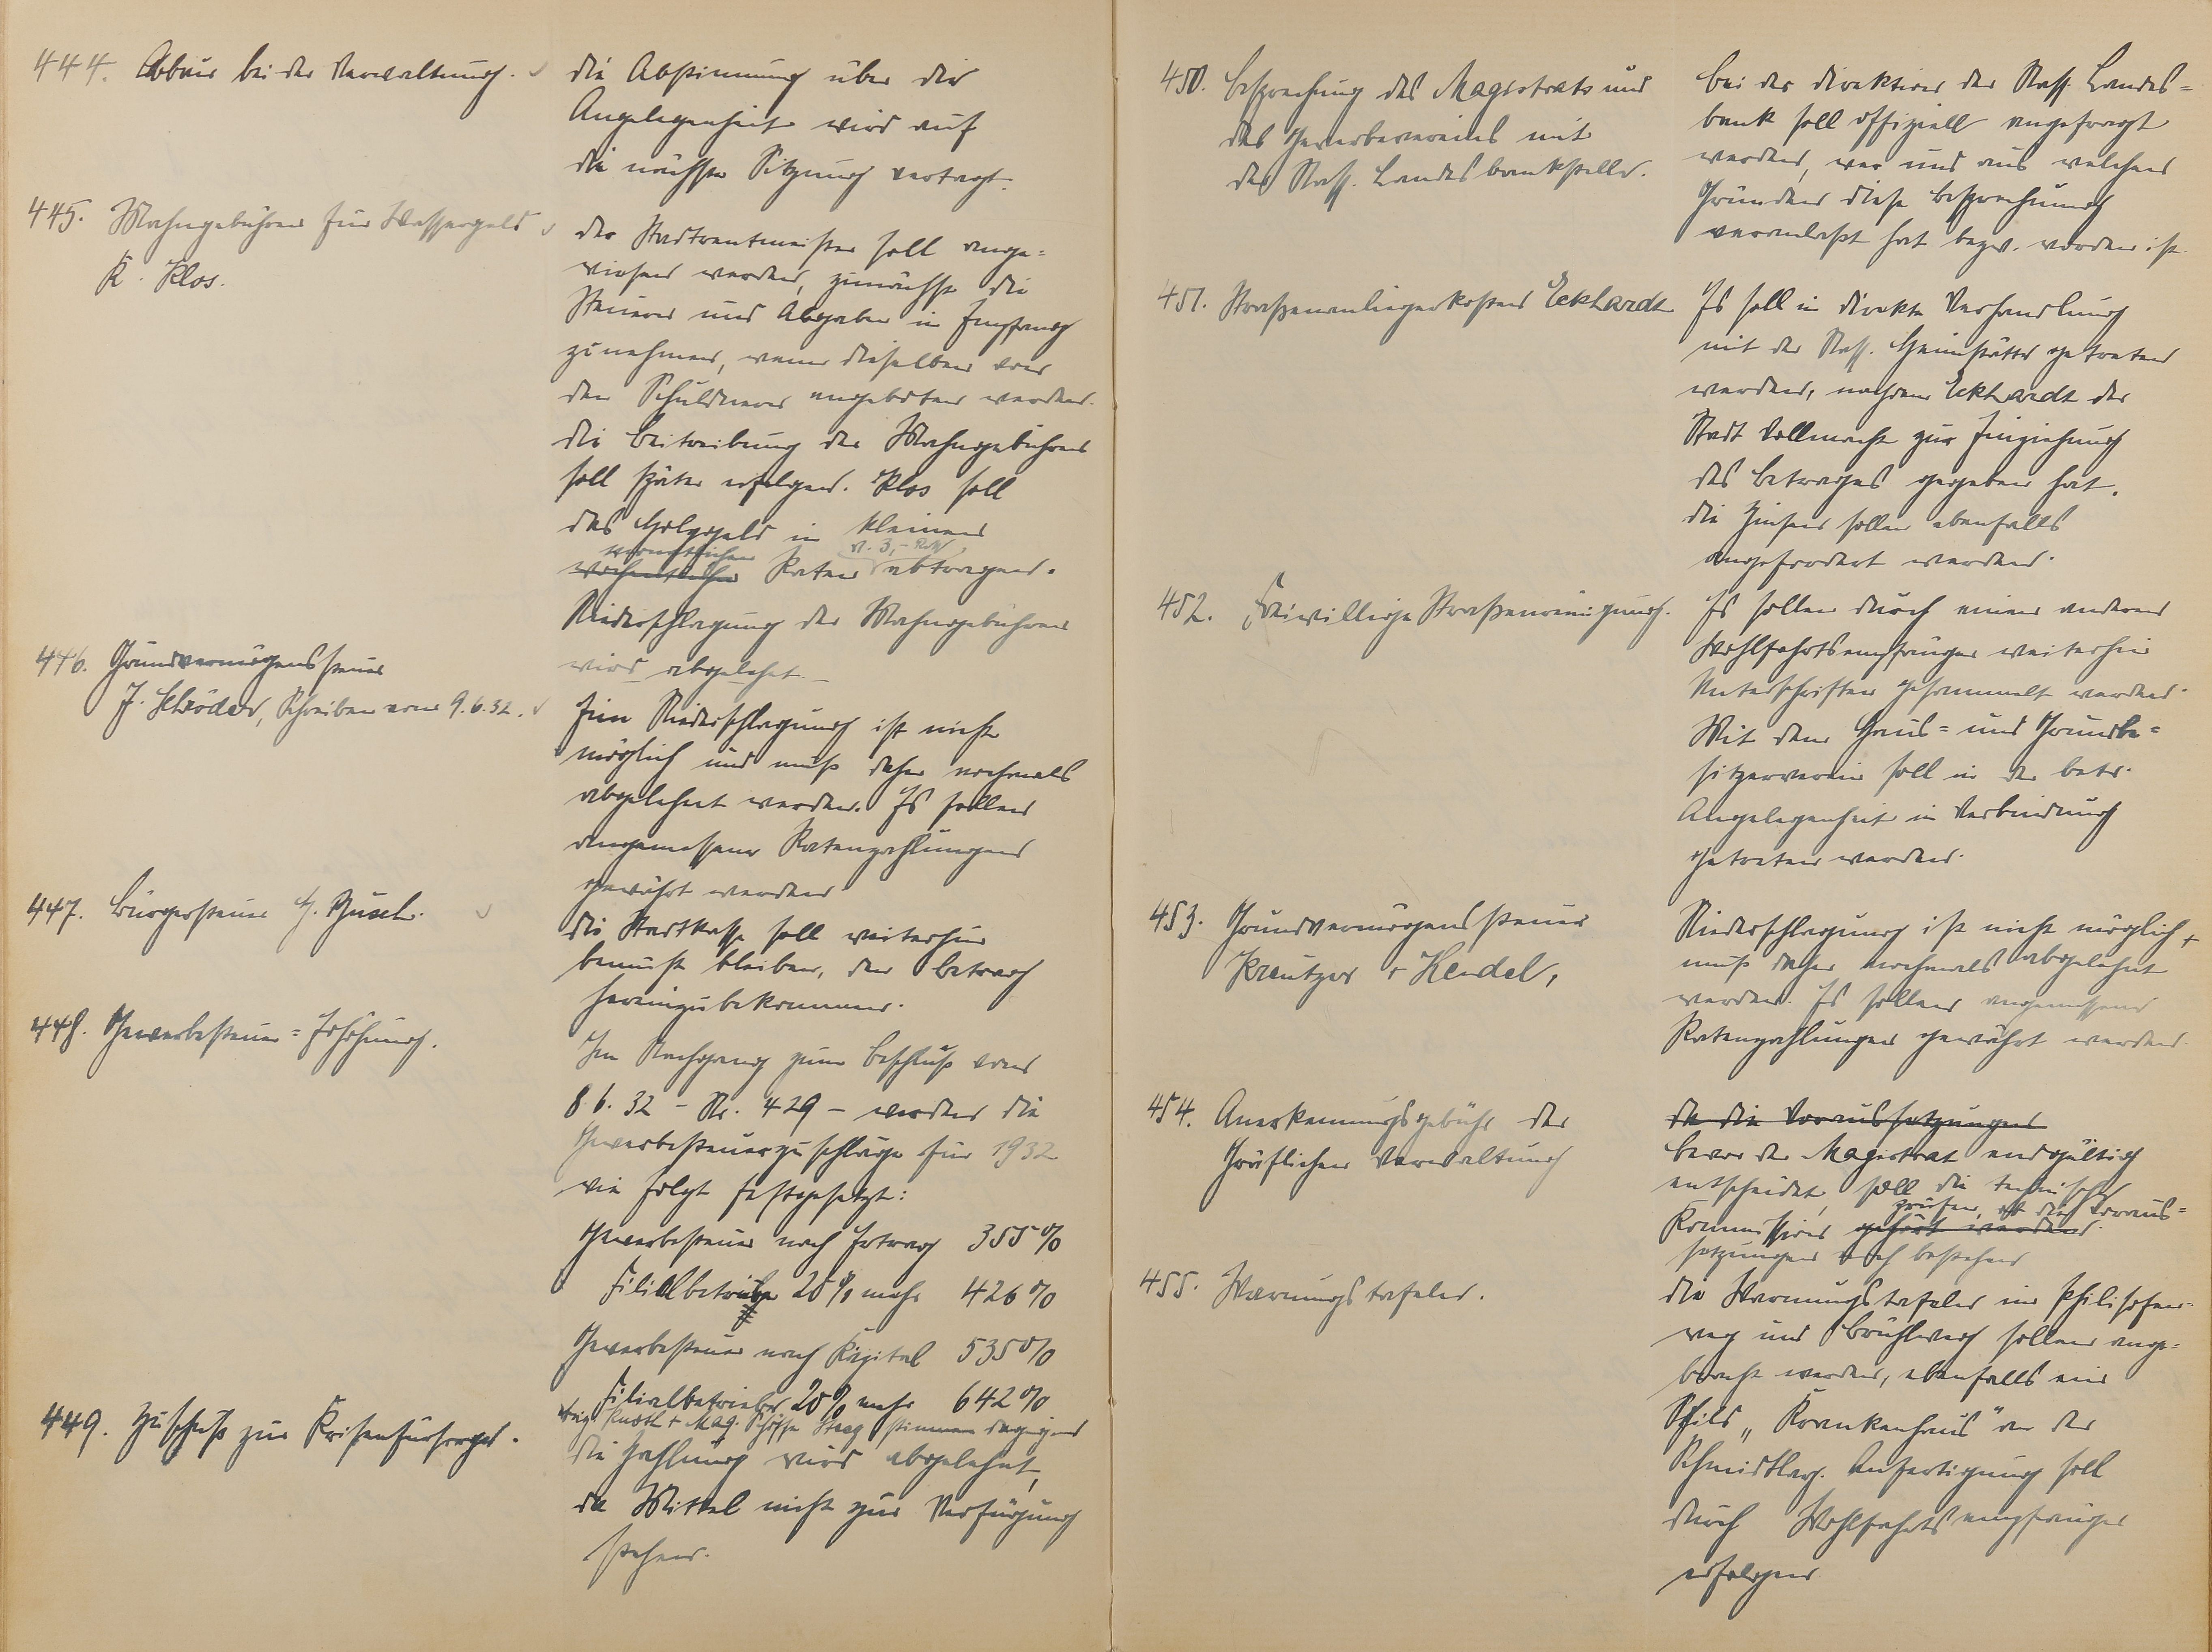 444. Abbau bei der Verwaltung.
die Abstimmung über die
Angelegenheit wird auf
die nächste Sitzung vertagt.
445. Mahngebühren für Wassergeld
K. Klos.
der Stadtrentmeister soll ange=
wiesen werden, zunächst die
Steuern und Abgaben in Empfang
zu nehmen, wenn dieselben von
den Schuldnern angeboten werden.
die Beitreibung der Mahngebühren
soll später erfolgen. Klos soll
das Holzgeld in kleinen
monatlichen v. 3,- RM
wöchentlichen Raten abtragen.
Niederschlagung der Mahngebühren
wird abgelehnt.
446. Grundvermögenssteuer
J. Schröder, Schreiben vom 9.6.32.
Eine Niederschlagung ist nicht
möglich und muß daher nochmals
abgelehnt werden. Es sollen
angemessene Ratenzahlungen
gewährt werden
447. Bürgersteuer H. Jusel.
die Stadtkasse soll weiterhin
bemüht bleiben, den Betrag
hereinzubekommen.
448. Gewerbesteuer=Erhöhung.
Im Nachgang zum Beschluß vom
8.6.32 - Nr. 429 - werden die
Gewerbesteuerzuschläge für 1932
wie folgt festgesetzt:
Gewerbesteuer nach Ertrag 355%
Filialbetriebe 20% mehr 426%
Gewerbesteuer nach Kapital 535%
Filialbetriebe 20% mehr 642%
Knoth + Mag. Schöffe Steeg stimmen dagegen
449. Zuschuß zur Krisenfürsorge.
die Zahlung wird abgelehnt,
da Mittel nicht zur Verfügung
stehen.
450. Besprechung des Magistrats und
des Gewerbevereins mit
der Nass. Landesbankstelle.
Bei der Direktion der Nass. Landes=
bank soll offiziell angefragt
werden, wer und aus welchen
Gründen diese Besprechung
veranlaßt hat bezw. worden ist
451. Straßenanliegerkosten Eckhardt
Es soll in direkte Verhandlung
mit der Nass. Heimstätte getreten
werden, nachdem Eckhardt der
Stadt Vollmacht zur Einziehung
des Betrages gegeben hat.
die Zinsen sollen ebenfalls
angefordert werden.
452. Freiwillige Straßenreinigung.
Es sollen durch einen anderen
Wohlfahrtsempfänger weiterhin
Unterschriften gesammelt werden.
Mit dem Haus= und Grundbe=
sitzerverein soll in der betr.
Angelegenheit in Verbindung
getreten werden.
453. Grundvermögenssteuer
Kreutzer + Kendel,
Niederschlagung ist nicht möglich,
muß daher nochmals abgelehnt
werden. Es sollen angemessene
Ratenzahlungen gewährt werden
454. Anerkennungsgebühr der
Gräflichen Verwaltung
da die Voraussetzungen
bevor der Magistrat endgültig
entscheidet, soll die technische
prüfen, ob die Voraus=
Kommission gehört werden.
setzungen noch bestehen
455. Warnungstafeln.
die Warnungstafeln im Philosofen=
weg und Brühlweg sollen ange=
bracht werden, ebenfalls ein
Schild „Krankenhaus" an der
Schmidtlag. Anfertigung soll
durch Wohlfahrtsempfänger
erfolgen